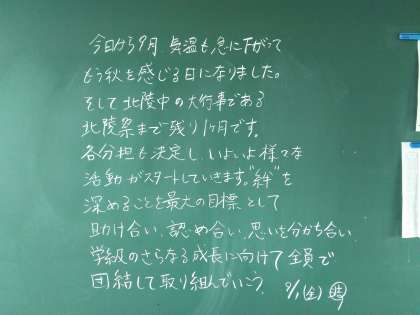 今日から9月、気温も急に下がって
もう秋を感じる日になりました。
そして北陵中の大行事である
北陵祭まで残り1ヶ月です。
各分担も決定し、いよいよ様々な
活動がスタートしていきます。"絆"を
深めることを最大の目標として
助け合い、認め合い、思いを分かち合い、
学級のさらなる成長に向けて全員で
団結して取り組んでいこう。 9/1(金)